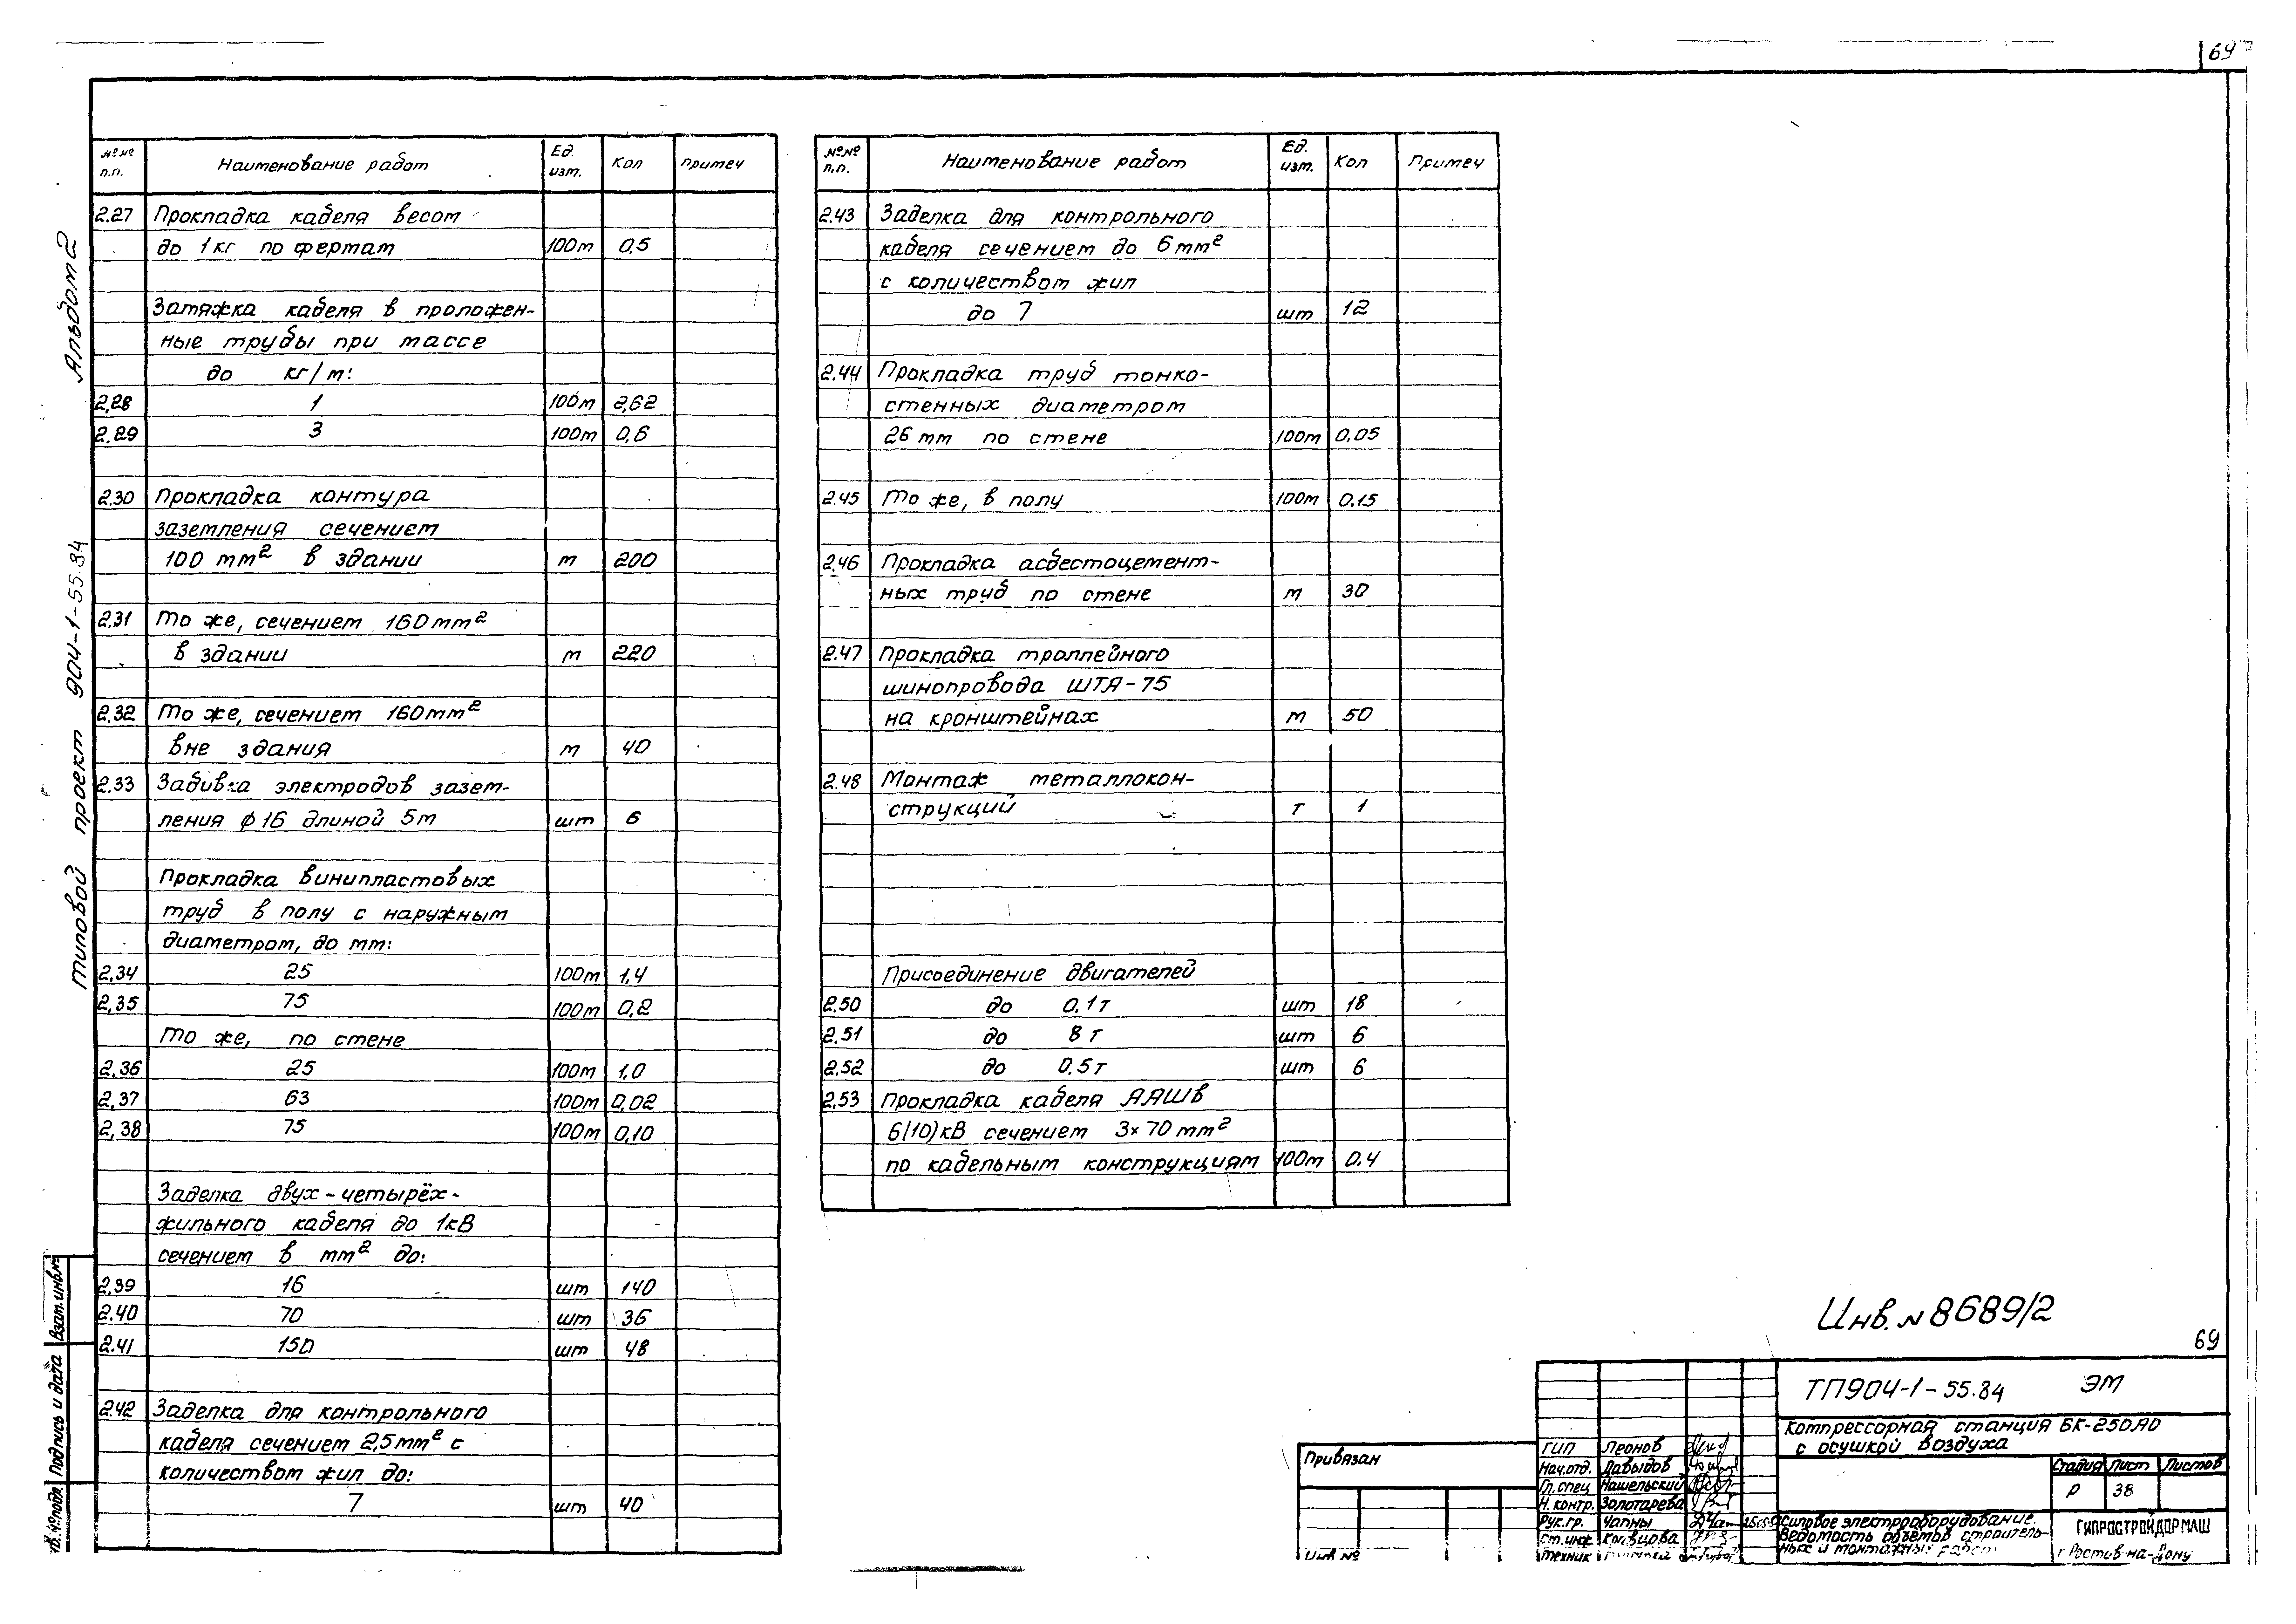 69
Альбом 2
типовой проект 904-1-55.84
№№ п.п. Наименование работ Ед. изм. Кол Примеч
2.27 Прокладка кабеля весом
до 1 кг по фермам 100м 0,5
Затяжка кабеля в проложен-
ные трубы при массе
до кг/м:
2,28 1 100м 2,62
2.29 3 100м 0,6
2.30 Прокладка контура
заземления сечением
100 мм² в здании м 200
2.31 То же, сечением 160 мм²
в здании м 220
2.32 То же, сечением 160 мм²
вне здания м 40
2.33 Забивка электродов зазем-
ления ф16 длиной 5м шт 6
Прокладка винипластовых
труб в полу с наружным
диаметром, до мм:
2,34 25 100м 1,4
2,35 75 100м 0,2
То же, по стене
2,36 25 100м 1,0
2,37 63 100м 0,02
2,38 75 100м 0,10
Заделка двух-четырёх-
жильного кабеля до 1кВ
сечением в мм² до:
2.39 16 шт 140
2.40 70 шт 36
2.41 150 шт 48
2.42 Заделка для контрольного
кабеля сечением 2,5 мм² с
количеством жил до:
7 шт 40
№№ п.п. Наименование работ Ед. изм. Кол Примеч
2.43 Заделка для контрольного
кабеля сечением до 6 мм²
с количеством жил
до 7 шт 12
2.44 Прокладка труб тонко-
стенных диаметром
26 мм по стене 100м 0,05
2.45 То же, в полу 100м 0,15
2.46 Прокладка асбестоцемент-
ных труб по стене м 30
2.47 Прокладка троллейного
шинопровода ШТА-75
на кронштейнах м 50
2.48 Монтаж металлокон-
струкций т 1
Присоединение двигателей
2.50 до 0,1т шт 18
2.51 до 8т шт 6
2.52 до 0,5т шт 6
2.53 Прокладка кабеля ААШв
6(10)кВ сечением 3×70 мм²
по кабельным конструкциям 100м 0,4
Инв. N 8689/2
69
ТП904-1-55.84 ЭМ
Компрессорная станция 6К-250А0
с осушкой воздуха
Стадия Лист Листов
Р 38
Силовое электрооборудование.
Ведомость объемов строитель-
ных и монтажных работ
ГИПРОСТРОЙДОРМАШ
г Ростов-на-Дону
Привязан
Инв №
ГИП Леонов
Нач.отд. Давыдов
Гл.спец Нашельский
Н. контр. Золотарева
Рук.гр. Чапны
Ст.инж
Техник
Взам.инв.№
Подпись и дата
Инв.№подл.